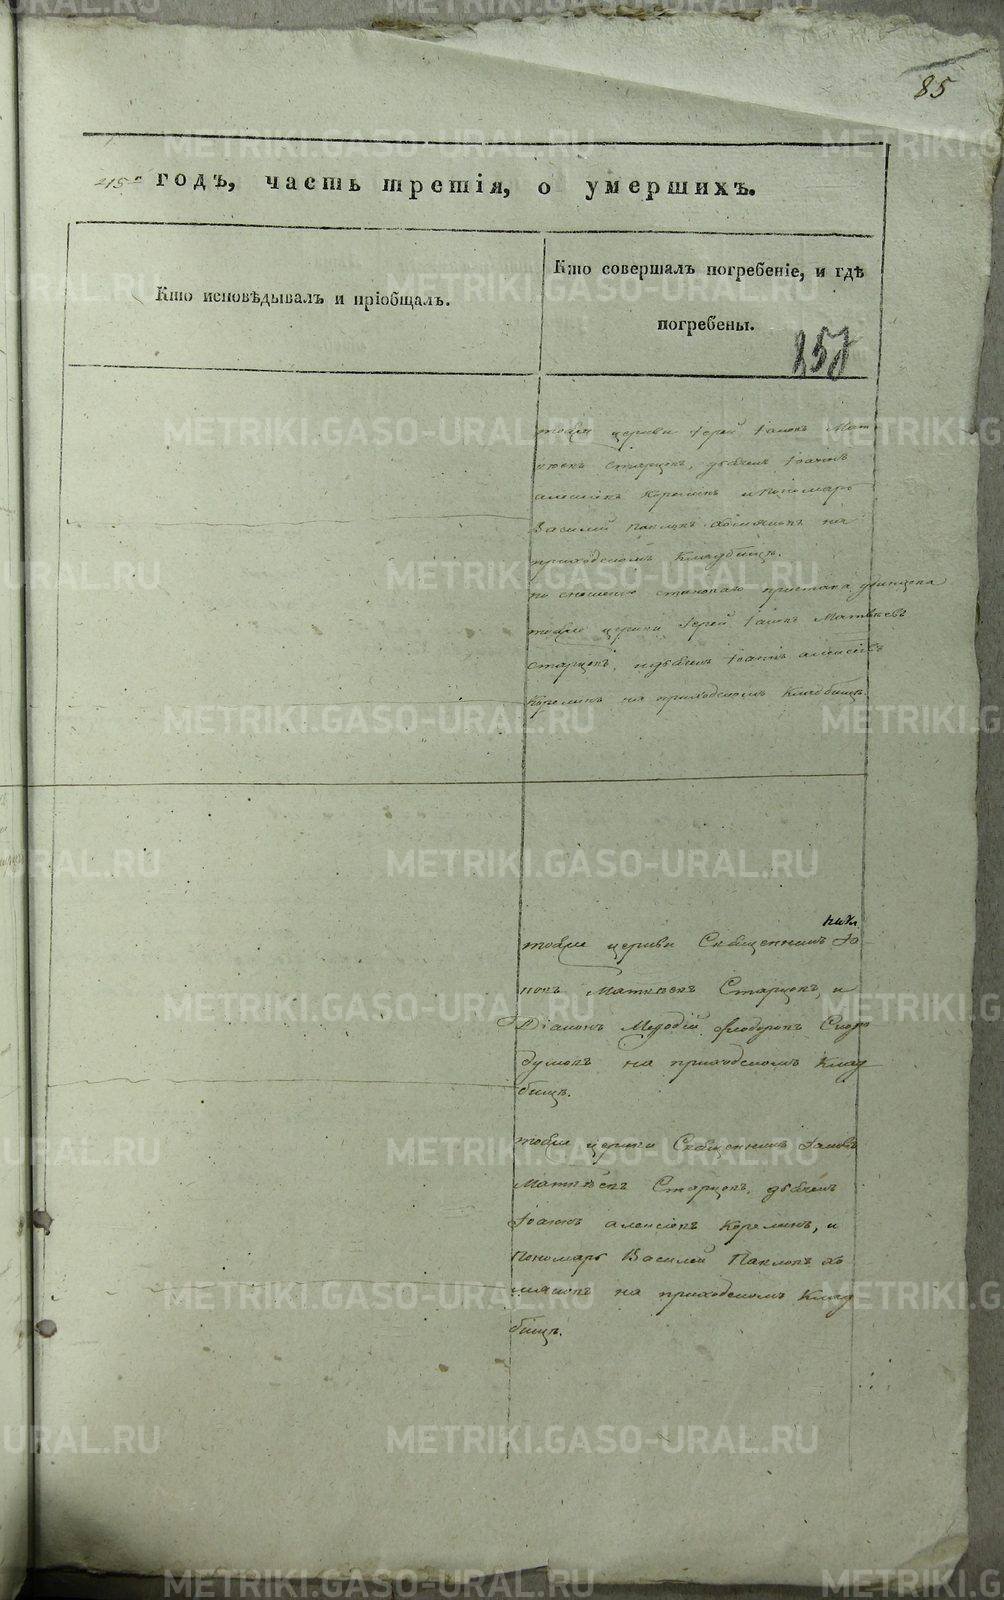 85
годъ, часть третія, о умершихъ.
Кто исповѣдывалъ и пріобщалъ.
Кто совершалъ погребеніе, и гдѣ
погребены.
тойже церкви Іерей Іаковъ Мат
вѣевъ Старцовъ, дьячекъ Іоаннъ
Алексѣевъ Корелинъ и Пономарь
Василій Павловъ на
приходскомъ Кладбищѣ.
по сношенію становаго пристава
тойже церкви Іерей Іаковъ Матвѣевъ
Старцовъ, и дьячекъ Іоаннъ Алексѣевъ
Корелинъ на приходскомъ Кладбищѣ.
тойже церкви Священникъ Іа
ковъ Матвѣевъ Старцовъ, и
Діаконъ Меѳодій Ѳеодоровъ
на приходскомъ Клад
бищѣ.
тойже церкви Священникъ Іаковъ
Матвѣевъ Старцовъ, дьячекъ
Іоаннъ Алексѣевъ Корелинъ, и
Пономарь Василій Павловъ
на приходскомъ Клад
бищѣ.
METRIKI.GASO-URAL.RU